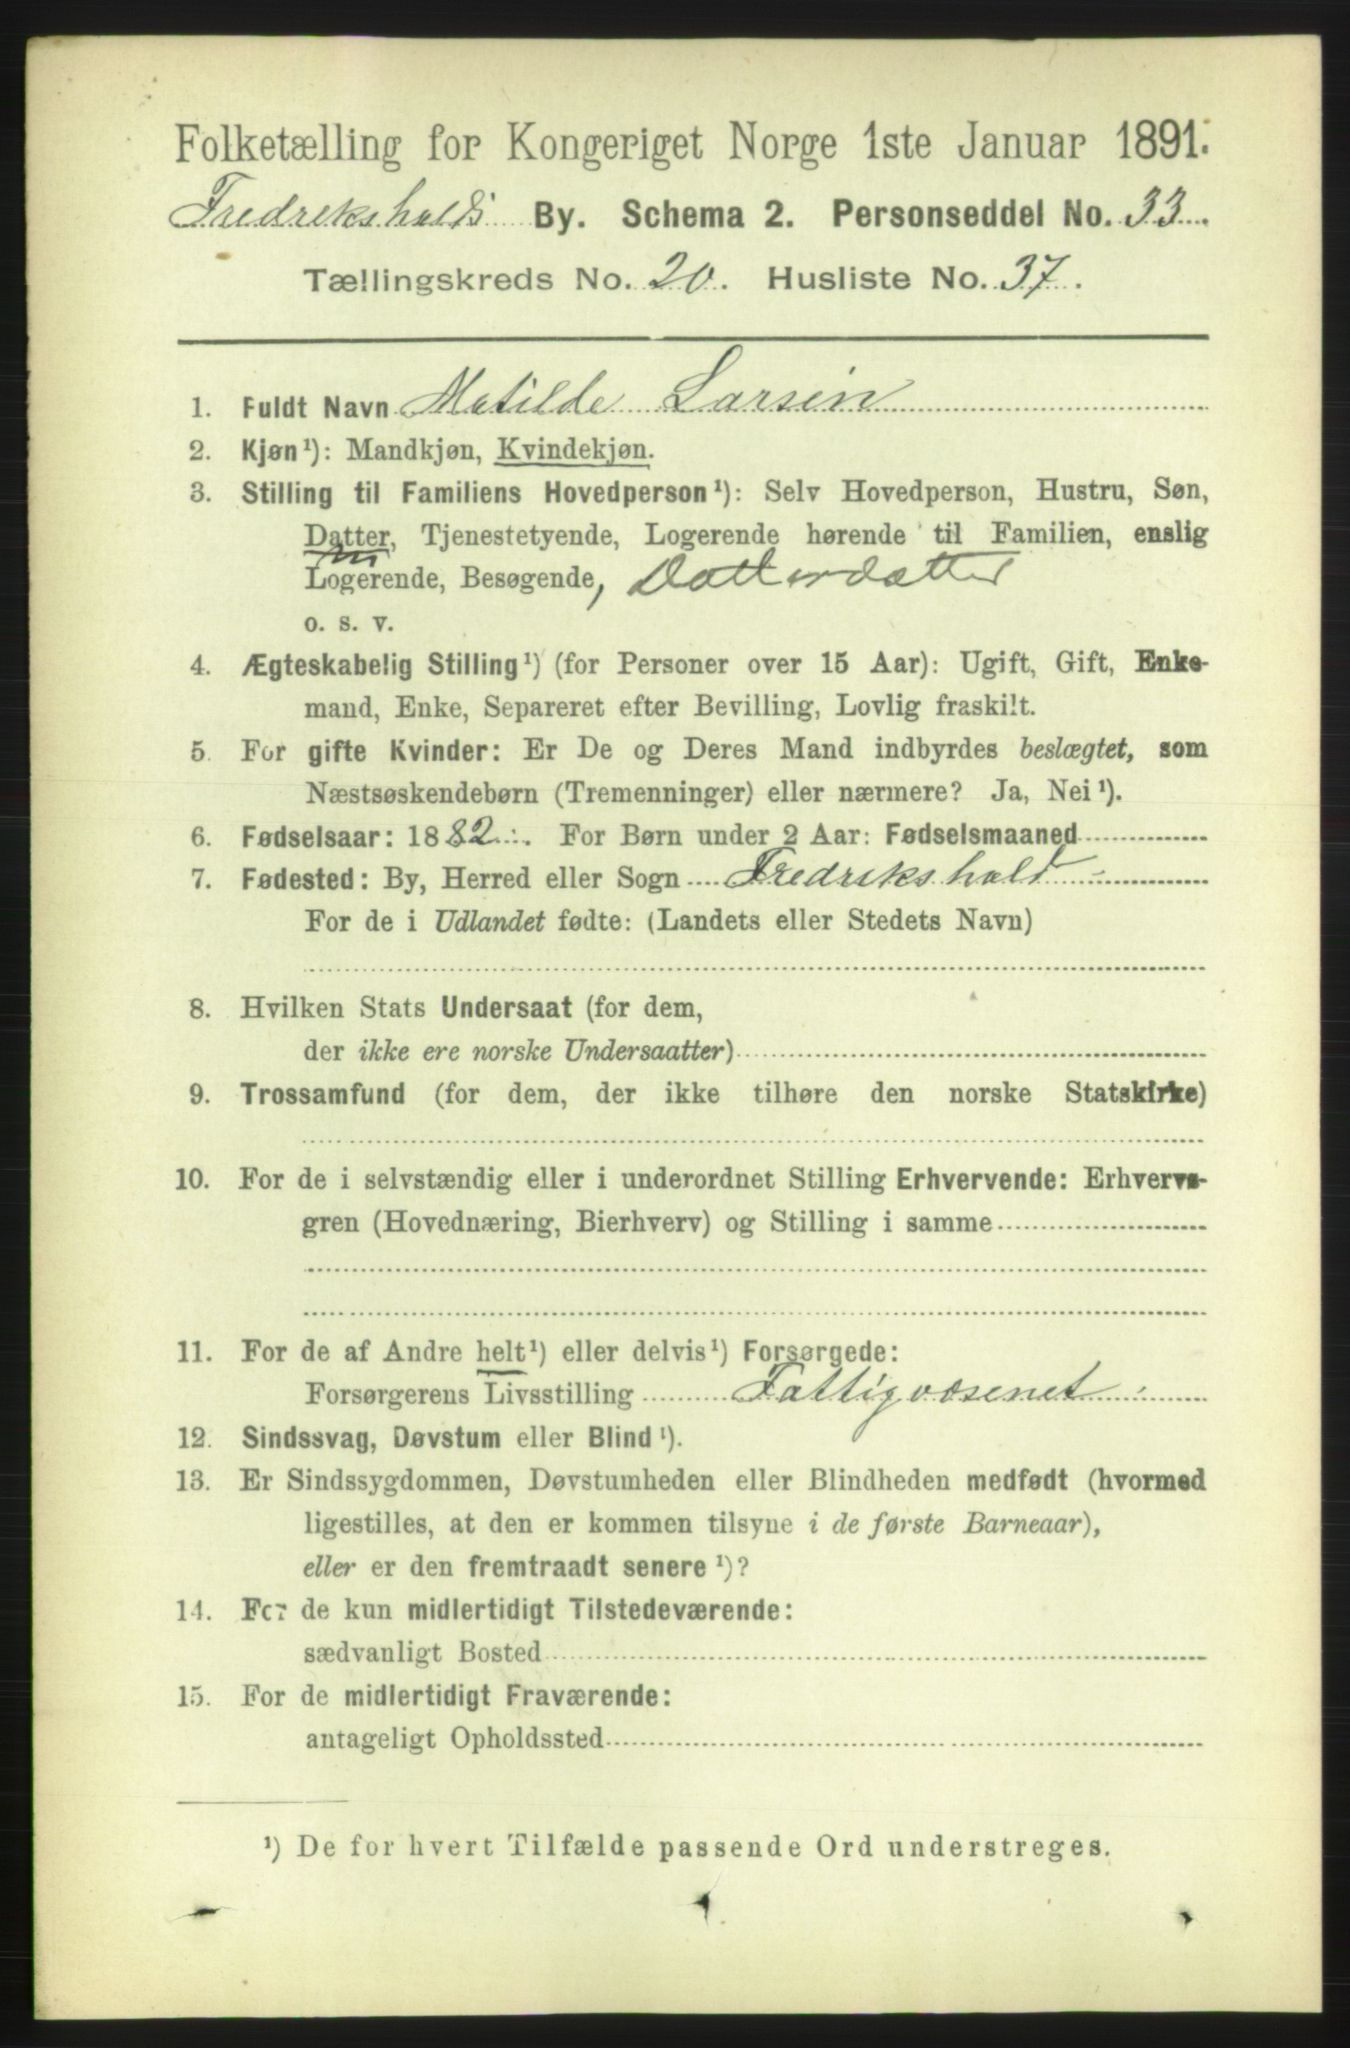 Folketælling for Kongeriget Norge 1ste Januar 1891.
Fredrikshalds By. Schema 2. Personseddel No. 33.
Tællingskreds No. 20. Husliste No. 37.
1. Fuldt Navn Matilde Larsen
2. Kjøn¹): Mandkjøn, Kvindekjøn.
3. Stilling til Familiens Hovedperson¹): Selv Hovedperson, Hustru, Søn,
Datter, Tjenestetyende, Logerende hørende til Familien, enslig
Logerende, Besøgende, Datterdatter
o. s. v.
4. Ægteskabelig Stilling¹) (for Personer over 15 Aar): Ugift, Gift, Enke-
mand, Enke, Separeret efter Bevilling, Lovlig fraskilt.
5. For gifte Kvinder: Er De og Deres Mand indbyrdes beslægtet, som
Næstsøskendebørn (Tremenninger) eller nærmere? Ja, Nei¹).
6. Fødselsaar: 1882. For Børn under 2 Aar: Fødselsmaaned
7. Fødested: By, Herred eller Sogn Fredrikshald
For de i Udlandet fødte: (Landets eller Stedets Navn)
8. Hvilken Stats Undersaat (for dem,
der ikke ere norske Undersaatter)
9. Trossamfund (for dem, der ikke tilhøre den norske Statskirke)
10. For de i selvstændig eller i underordnet Stilling Erhvervende: Erhvervs-
gren (Hovednæring, Bierhverv) og Stilling i samme
11. For de af Andre helt¹) eller delvis¹) Forsørgede:
Forsørgerens Livsstilling Fattigvæsenet
12. Sindssvag, Døvstum eller Blind¹).
13. Er Sindssygdommen, Døvstumheden eller Blindheden medfødt (hvormed
ligestilles, at den er kommen tilsyne i de første Barneaar),
eller er den fremtraadt senere¹)?
14. For de kun midlertidigt Tilstedeværende:
sædvanligt Bosted
15. For de midlertidigt Fraværende:
antageligt Opholdssted
¹) De for hvert Tilfælde passende Ord understreges.